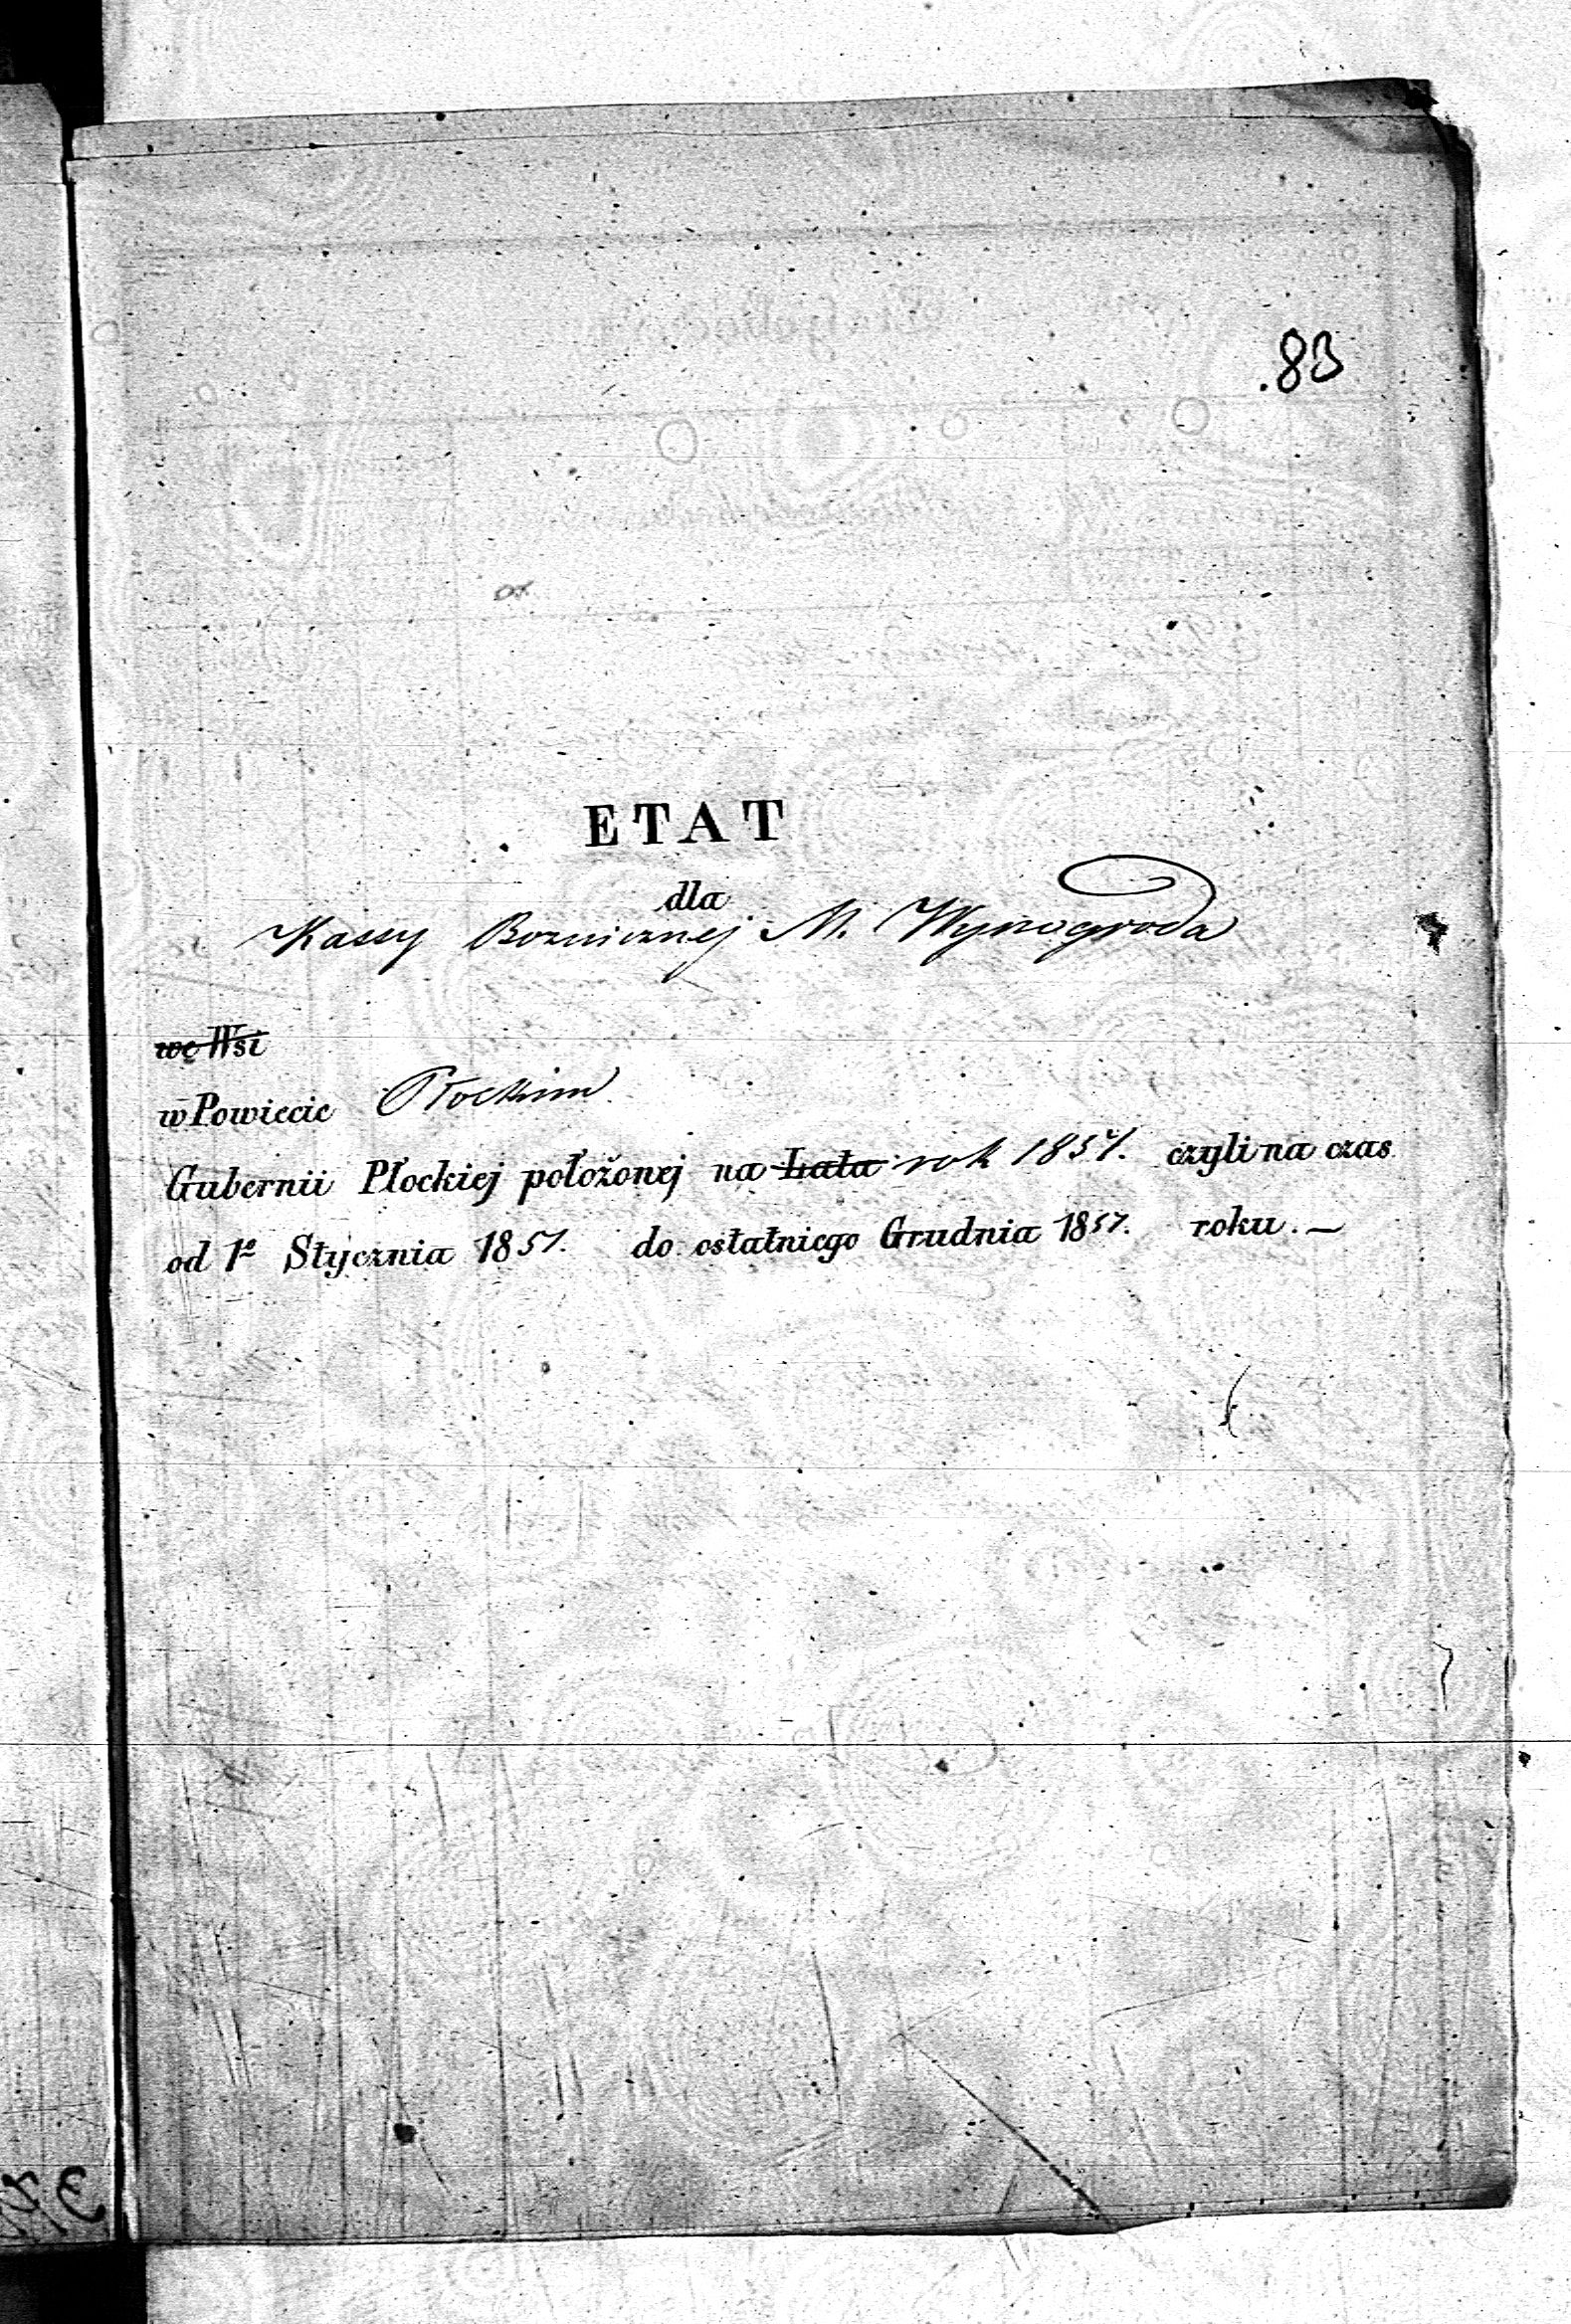 .83
ETAT
dla
Kassy Boznicznej M. Wyszogroda
we Wsi
w Powiecie Płockim
Gubernii Płockiej położonej na Lata rok 1851. czyli na czas
od 1º Stycznia 1851. do ostatniego Grudnia 1851. roku. —